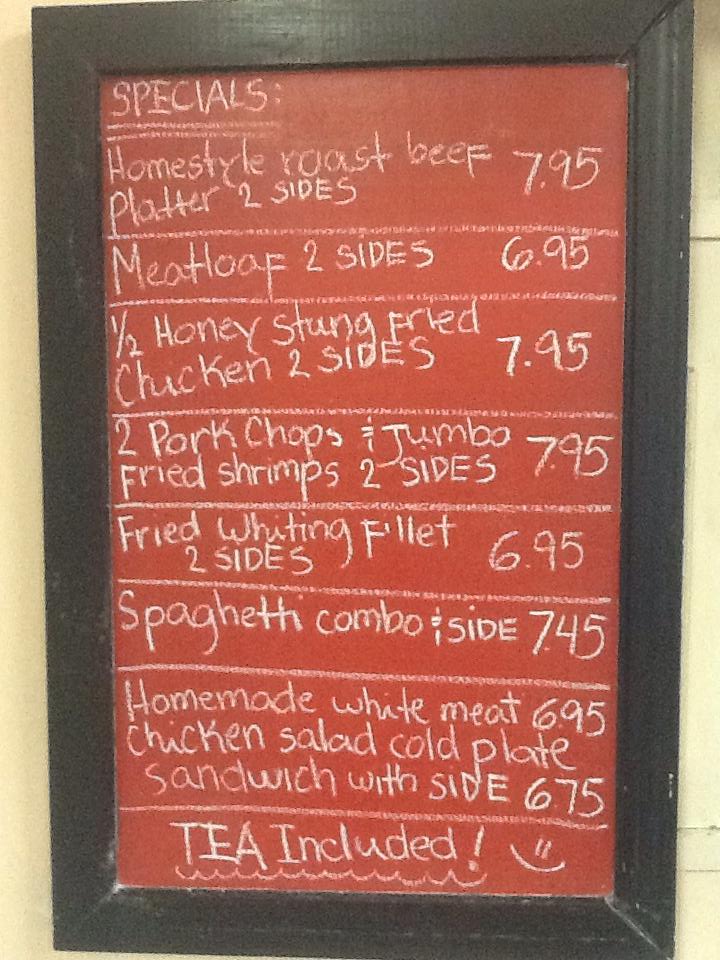 SPECIALS:
Homestyle roast beef 7.95
Platter 2 SIDES
Meatloaf 2 SIDES 6.95
½ Honey Stung Fried
Chicken 2 SIDES 7.95
2 Pork Chops & Jumbo 7.95
Fried shrimps 2 SIDES
Fried Whiting Fillet 6.95
2 SIDES
Spaghetti combo & SIDE 7.45
Homemade white meat 6.95
Chicken salad cold plate
Sandwich with SIDE 6.75
TEA Included!